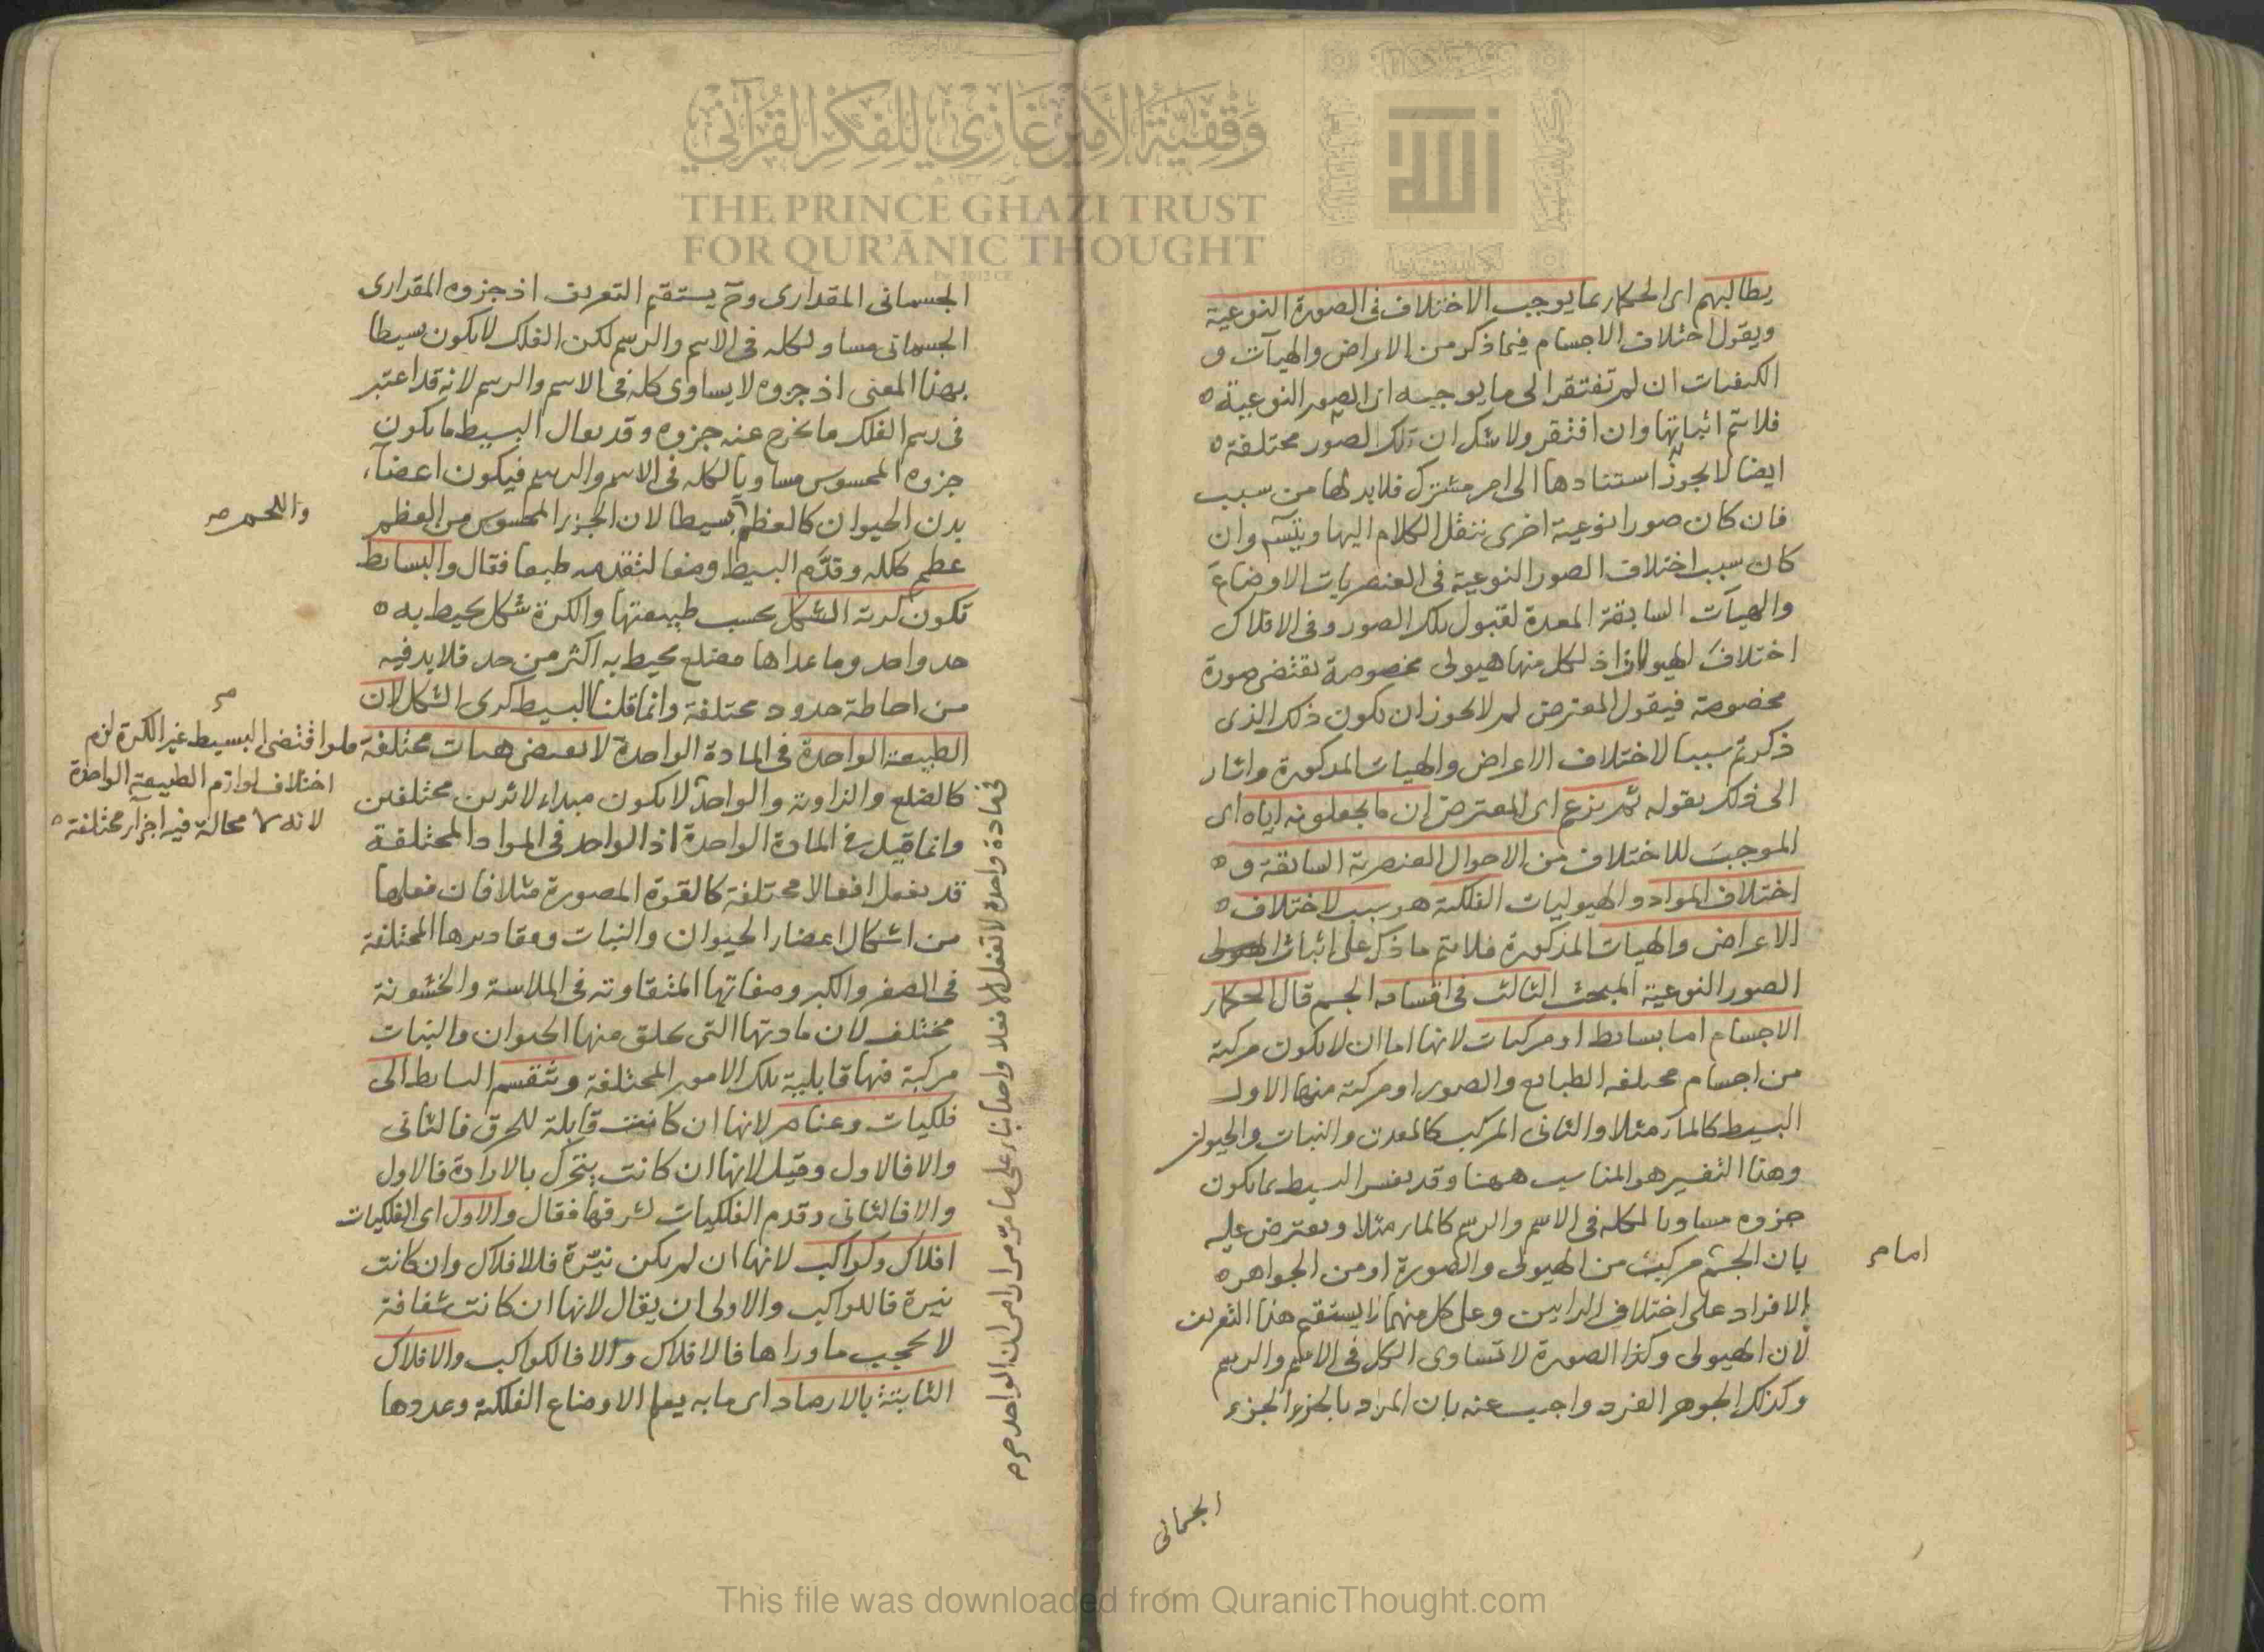 يطالبهم اى الحكماء بما يوجب الاختلاف فى الصورة النوعية
ويقول اختلاف الاجسام فيما ذكر من الاعراض والهيآت و
الكيفيات ان لم تفتقر الى ما يوجبه اى الصور النوعية
فلا يتم اثباتها وان افتقر ولا شك ان تلك الصور مختلفة
ايضا لا يجوز استنادها الى امر مشترك فلا بد لها من سبب
فان كان صورا نوعية اخرى ننقل الكلام اليها ويتسم وان
كان سبب اختلاف الصور النوعية فى العنصريات الاوضاع
والهيآت السابقة المعدة لقبول تلك الصور وفى الافلاك
اختلاف الهيولات اذ لكل منها هيولى مخصوصة تقتضى صورة
مخصوصة فيقول المعترض لم لا يجوز ان يكون ذلك الذى
ذكرتم سببا لاختلاف الاعراض والهيات المذكورة واشار
الى ذلك بقوله ثم يزعم اى المعترض ان ما يجعلونه اياه اى
الموجب للاختلاف من الاحوال العنصرية السابقة و
اختلاف المواد والهيوليات الفلكية هو سبب لاختلاف
الاعراض والهيات المذكورة فلا يتم ما ذكر على اثبات
الصور النوعية المبحث الثالث فى اقسامه الجسم قال الحكماء
الاجسام اما بسائط او مركبات لانها اما ان لا يكون مركبة
من اجسام مختلفه الطبايع والصور او مركبة منها الاول
البسيط كالمآء مثلا والثانى المركب كالمعدن والنبات والحيوان
وهذا التفسير هو المناسب ههنا وقد يفسر البسيط بما يكون
جزوه مساويا لكله فى الاسم والرسم كالماء مثلا ويعترض عليه
بان الجسم مركب من الهيولى والصورة او من الجواهر
الافراد على اختلاف الرايين وعلى كل منهما لا يستقيم هذا التعريف
لان الهيولى وكذا الصورة لا تساوى الكل فى الاسم والرسم
وكذلك الجوهر الفرد واجيب عنه بان المراد بالجزء الجزء
امام
الجسمانى
الجسمانى المقدارى وح يستقيم التعريف اذ جزوه المقدارى
الجسمانى مساو لكله فى الاسم والرسم لكن الفلك لا يكون بسيطا
بهذا المعنى اذ جزوه لا يساوى كله فى الاسم والرسم لانه قد اعتبر
فى رسم الفلك ما يخرج عنه جزوه وقد يقال البسيط ما يكون
جزوه المحسوس مساويا لكله فى الاسم والرسم فيكون اعضآء
بدن الحيوان كالعظم بسيطا لان الجزء المحسوس من العظم
عظم ككله وقدم البسيط وضعا لتقدمه طبعا فقال والبسائط
تكون كرية الشكل بحسب طبيعتها والكرة شكل يحيط به
حد واحد وما عداها مضلع يحيط به اكثر من حد فلا بد فيه
من احاطة حدود مختلفة وانما قلنا البسيط كرى الشكل لان
الطبيعة الواحدة فى المادة الواحدة لا تقتضى هيات مختلفة
كالضلع والزاوية والواحد لا يكون مبداء لاثرين مختلفين
وانما قيل فى المادة الواحدة اذ الواحد فى المواد المختلفة
قد يفعل افعالا مختلفة كالقوة المصورة مثلا فان فعلها
من اشكال اعضاء الحيوان والنبات ومقاديرها المختلفة
فى الصغر والكبر وصفاتها المتفاوته فى الملاسة والخشونة
مختلف لان مادتها التى يخلق منها الحيوان والنبات
مركبة فيها قابلية تلك الامور المختلفة وتنقسم البسائط الى
فلكيات وعناصر لانها ان كانت قابلة للخرق فالثانى
والا فالاول وقيل لانها ان كانت يتحرك بالارادة فالاول
والا فالثانى وقدم الفلكيات لشرفها فقال والاول اى الفلكيات
افلاك وكواكب لانها ان لم يكن نيرة فالافلاك وان كانت
نيرة فالكواكب والاولى ان يقال لانها ان كانت شفافة
لا تحجب ماوراها فالافلاك والا فالكواكب والافلاك
الثابتة بالارصاد اى ما به يعلم الاوضاع الفلكية وعددها
واللحم صح
فلو اقتضى البسيط غير الكرة لزم
اختلاف لوازم الطبيعة الواحدة
لانه لا محالة فيه اجزآء مختلفة
فى مادة واحدة لا تفعل الا فعلا واحدا بناء على ما مر مرارا من ان الواحد